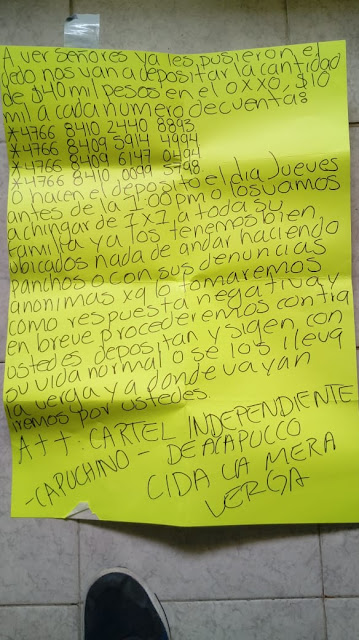 A ver señores ya les pusieron el
dedo nos van a depositar la cantidad
de $40 mil pesos en el OXXO, $10
mil a cada numero de cuenta:
*4766 8410 2440 8893
*4766 8409 5914 4994
*4766 8409 6147 0494
*4766 8410 0099 5798
O hacen el deposito el dia Jueves
antes de la 1:00pm o los vamos
a chingar de 1x1 a toda su
familia ya los tenemos bien
ubicados nada de andar haciendo
panchos o con sus denuncias
anonimas xq lo tomaremos
como respuesta negativa y
en breve procederemos contra
ustedes depositan y sigen con
su vida normal o se los lleva
la verga y a donde vayan
iremos por ustedes.
Att: CARTEL INDEPENDIENTE
DE ACAPULCO
-CAPUCHINO-
CIDA LA MERA
VERGA